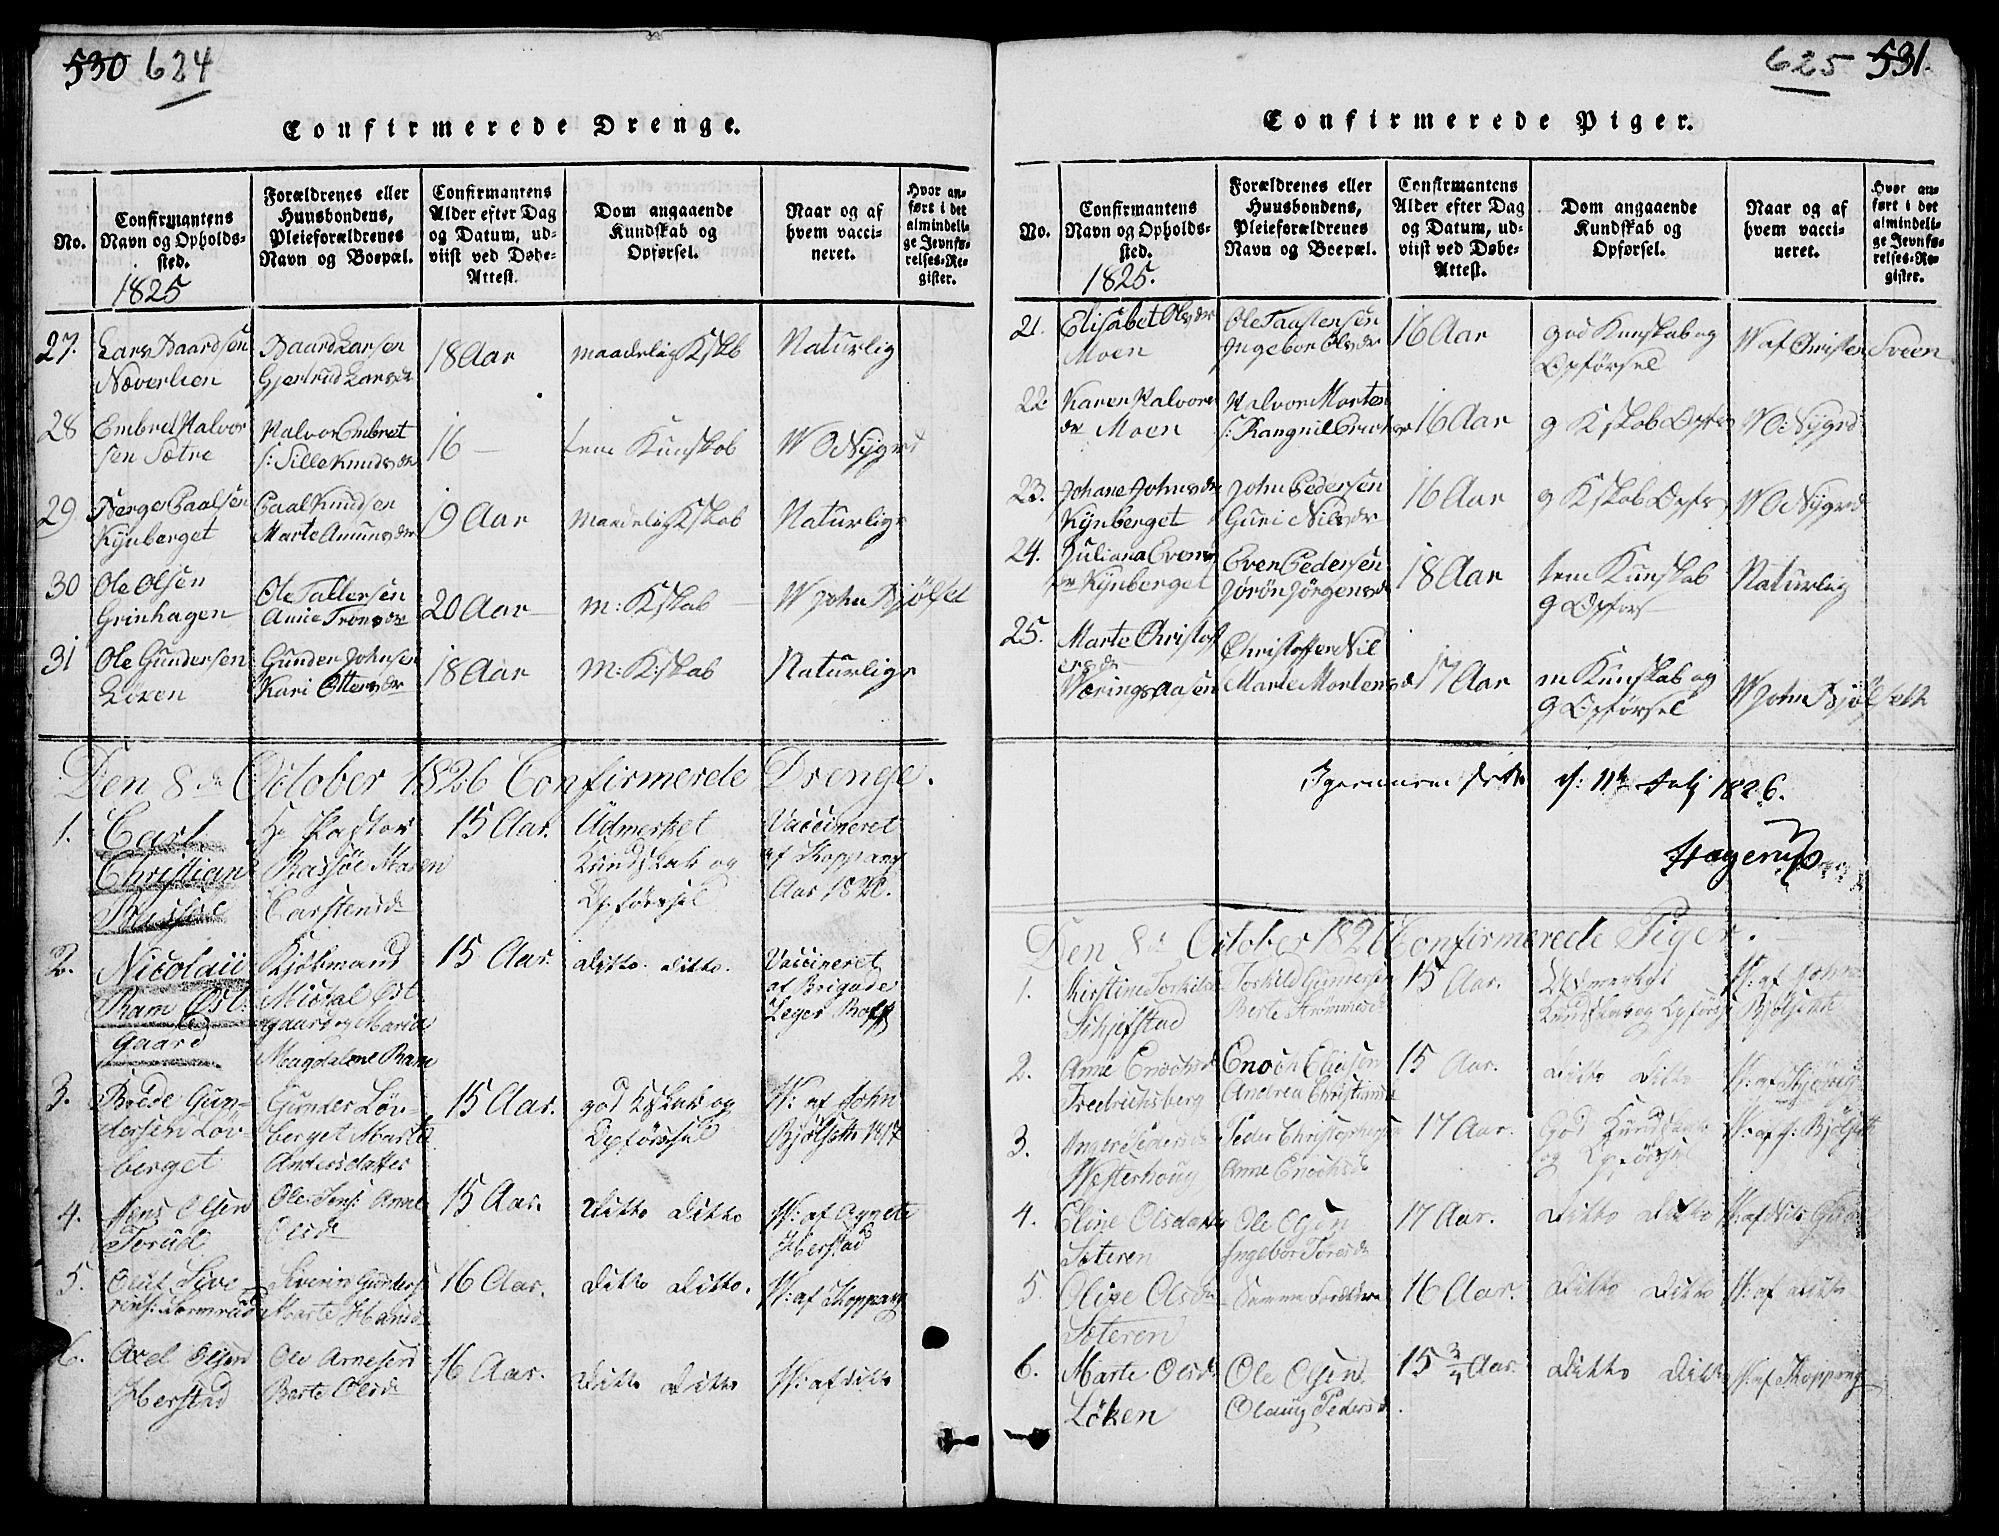 530 624
Confirmerede Drenge.
No.
Confirmantens
Navn og Opholds-
sted.
1825
Forældrenes eller
Huusbondens,
Pleieforældrenes
Navn og Boepæl.
Confirmantens
Alder efter Dag
og Datum, ud-
viist ved Døbe-
Attest.
Dom angaaende
Kundskab og
Opførsel.
Naar og af
hvem vacci-
neret.
Hvor an-
ført i det
almindeli-
ge Jevnfø-
relses-Re-
gister.
27.
Lars Baardsen
Næverlien
Baard Larsen
Gjertrud Larsdr
18 Aar
maadelig Kskb
Naturlig
28
Embret Halvor
sen Sætre
Halvor Embret
s: Sille Knudsdr
16 —
tem Kunskab
W O Nygrd
29
Berger Paalsen
Kynberget
Paal Knudsen
Marte Amunsdr
19 Aar
Maadelig Kskab
Naturlige
30
Ole Olsen
Grinhagen
Ole Tallersen
Anne Tronsdr
20 Aar
m: Kskab
W John Bjølset
31
Ole Gundersen
Løken
Gunder Johnsen
Kari Ottersdr
18 Aar
M: K:skab
Naturlige
Den 8de October 1826 Confirmerede Drenge.
1.
Carl
Christian
Hr Pastor
Bassøe Maren
Carstensd
15 Aar.
Udmerket
Kundskab og
Opførssel
Vaccineret
af Koppang
Aar 1820.
2.
Nicolaii
Ram Øst-
gaard
Kjøbmand
Michal Øst-
gaard og Maria
Magdalene Ram
15 Aar.
ditto ditto.
Vaccineret
af Brigade
Læger Roff
3.
Brede Gun-
dersen Løv-
berget
Gunder Løv-
berget Marte
Andersdatter
15 Aar.
god Kskab og
Opførssel
W: af John
Bjølseth 1817
4.
Jens Olsen
Torud
Ole Jens: Anne
Olsd
15 Aar.
Ditto Ditto
W: af Aggete
Herstad
5.
Oluf Seve
Severin Gunders:
Marte Hansd
16 Aar.
Ditto Ditto.
W: af Koppang
6.
Axel Olsen
Herstad
Ole Arnesen
Berte Olsd
16 Aar.
Ditto Ditto
W: af ditto
625 531.
Confirmerede Piger.
No.
Confirmantens
Navn og Opholds-
sted.
1825.
Forældrenes eller
Huusbondens,
Pleieforældrenes
Navn og Boepæl.
Confirmantens
Alder efter Dag
og Datum, ud-
viist ved Døbe-
Attest.
Dom angaaende
Kundskab og
Opførsel.
Naar og af
hvem vacci-
neret.
Hvor an-
ført i det
almindeli-
ge Jevnfø-
relses-Re-
gister.
21.
Elisabet Olsdr
Moen
Ole Taastensen
Ingebor Olsdr
16 Aar
god Kunskab og
Opførsel
W af Christen Sveen
22
Karen Halvors
dr Moen
Halvor Morten
s: Rangnil Erichsdr
16 Aar
g Kskab Opfs
W O Nygrd
23.
Johane Johnsdr
Kynberget
John Pedersen
Guri Nilsdr
16 Aar
g Kskab Opfs
W O Nygrd
24.
Juliana Evens
dr Kynberget
Even Pedersen
Jørøn Jørgensd
18 Aar
tem Kunskab
g Opførs
Naturlig
25.
Marte Christoff
ersdr
Wæringsaasen
Christoffer Nil
Marte Mortensd
17 Aar
m Kunskab og
g Opførsel
W John Bjølseth
d: 11te Julj 1826.
Hagerup
Den 8de October 1826 Confirmerede Piger.
1.
Kirstine Torkilsd
Schjefstad
Torkild Gundersen
Berte Strømmesd
15 Aar.
Udmerket
Kundskab og Opførsel
W: af John
Bjølseth
2.
Anne Enochsd
Fredrichsberg
Enoch Eliasen
Andrea Christiansd
15 Aar.
Ditto Ditto
3.
Westerhoug
Peder Christophersen
Anne Enochsd
17 Aar.
God Kundskab
og Opførssel
W: af J: Bjølseth
4.
Eline Olsdatter
Sæteren
Ole Olsen
Ingebor Toresd
17 Aar.
Ditto Ditto
5.
Oline Olsd
Sæteren
Samme Forældre
16 Aar.
Ditto Ditto
W: af ditto
6.
Marte Olsd
Løken
Ole Olsen
Olaug Pedersd.
15 3/4 Aar.
Ditto Ditto
W: af Koppang